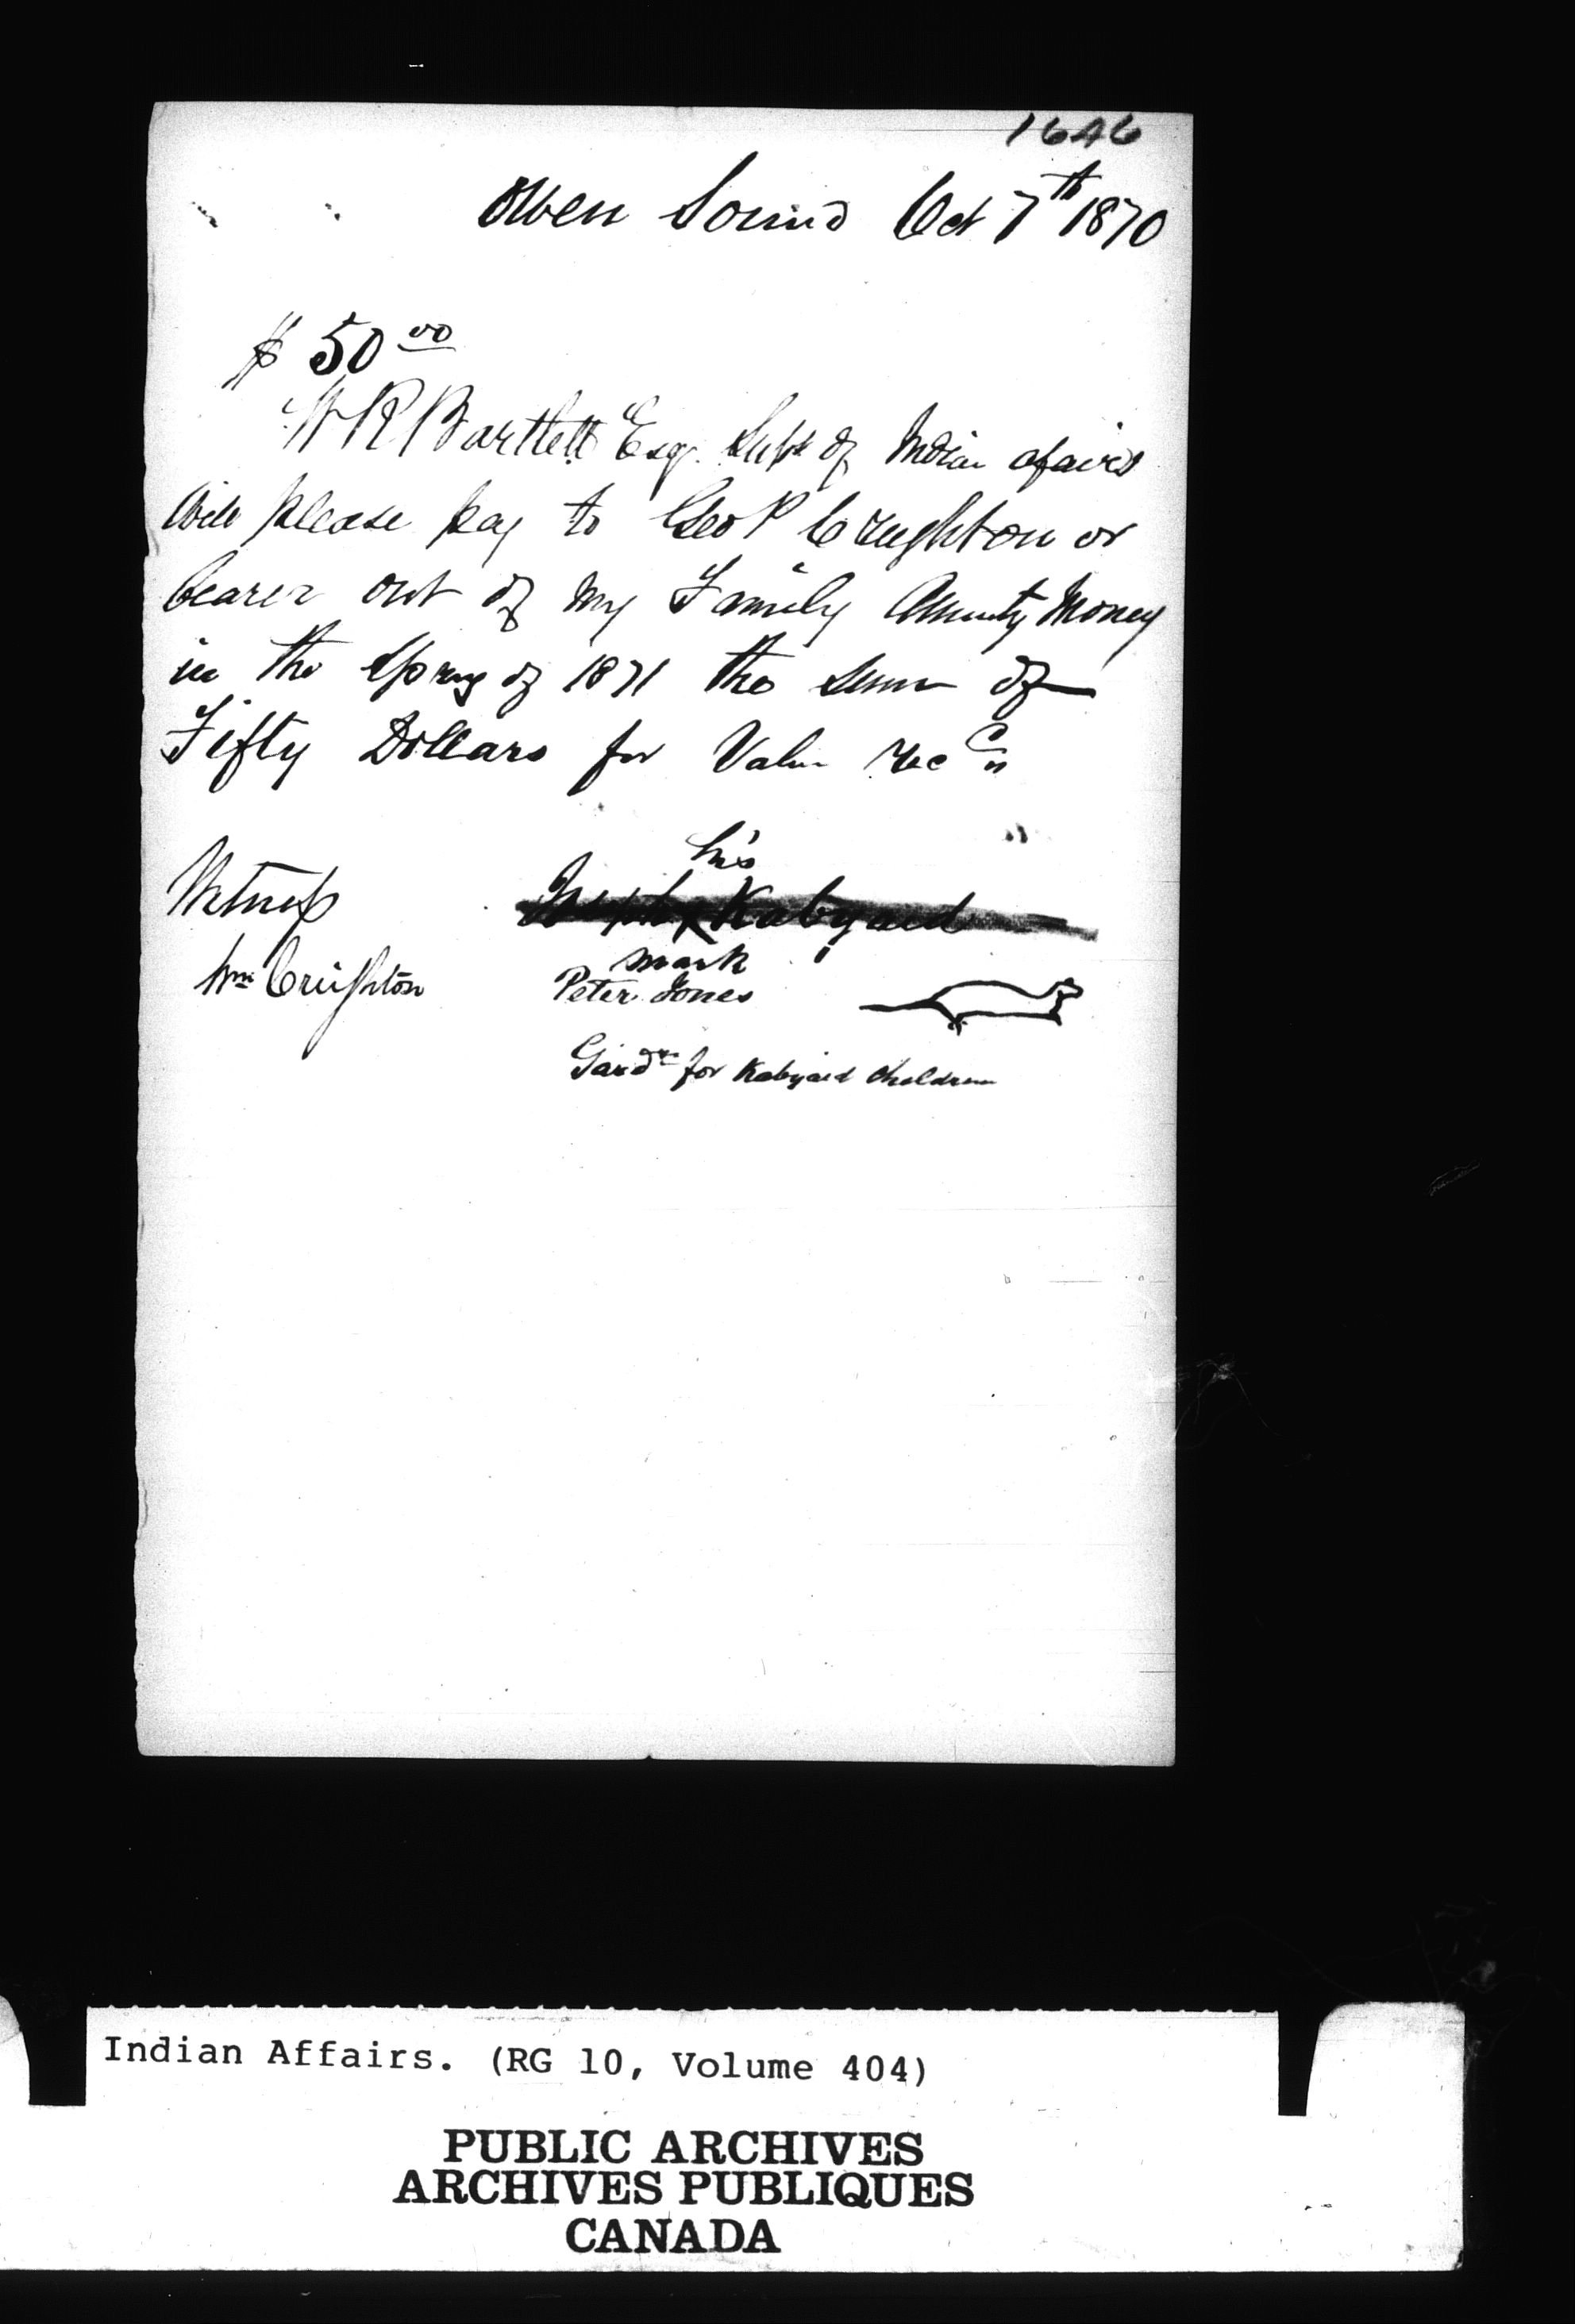 1646
Owen Sound Oct 7th 1870
$ 50 00
W R Bartlett Esq. Supt of Indian afairs
Will please pay to Geo P Creighton or
bearer out of my Family Annuity Money
in the Spring of 1871 the sum of
Fifty Dollars for Value Recd
his
Witness Kabyaid
mark
Wm Creighton Peter Jones
Gardn for Kabyaid Children
Indian Affairs. (RG 10, Volume 404)
PUBLIC ARCHIVES
ARCHIVES PUBLIQUES
CANADA